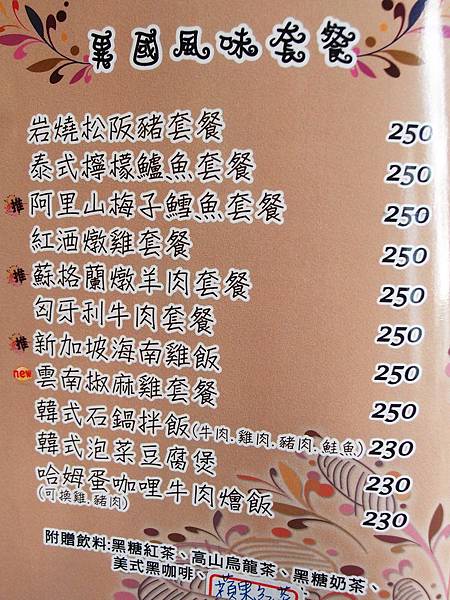 異國風味套餐
岩燒松阪豬套餐 250
泰式檸檬鱸魚套餐 250
推 阿里山梅子鱈魚套餐 250
紅酒燉雞套餐 250
推 蘇格蘭燉羊肉套餐 250
匈牙利牛肉套餐 250
推 新加坡海南雞飯 250
new 雲南椒麻雞套餐 250
韓式石鍋拌飯(牛肉.雞肉.豬肉.鮭魚) 230
韓式泡菜豆腐煲 230
哈姆蛋咖哩牛肉燴飯 230
(可換雞.豬肉)
附贈飲料:黑糖紅茶、高山烏龍茶、黑糖奶茶、
美式黑咖啡、蘋果紅茶